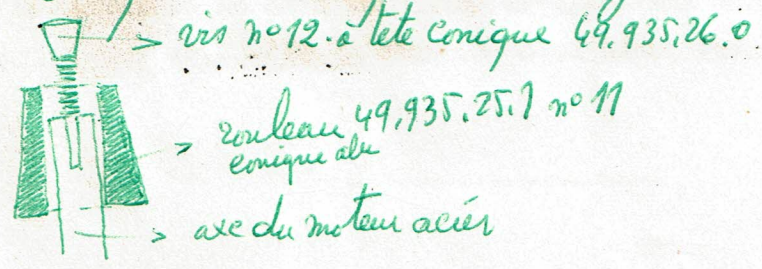 vis n°12. à tete conique 49.935.26.0
rouleau 49.935.25.1 n° 11
conique alu
axe du moteur acier